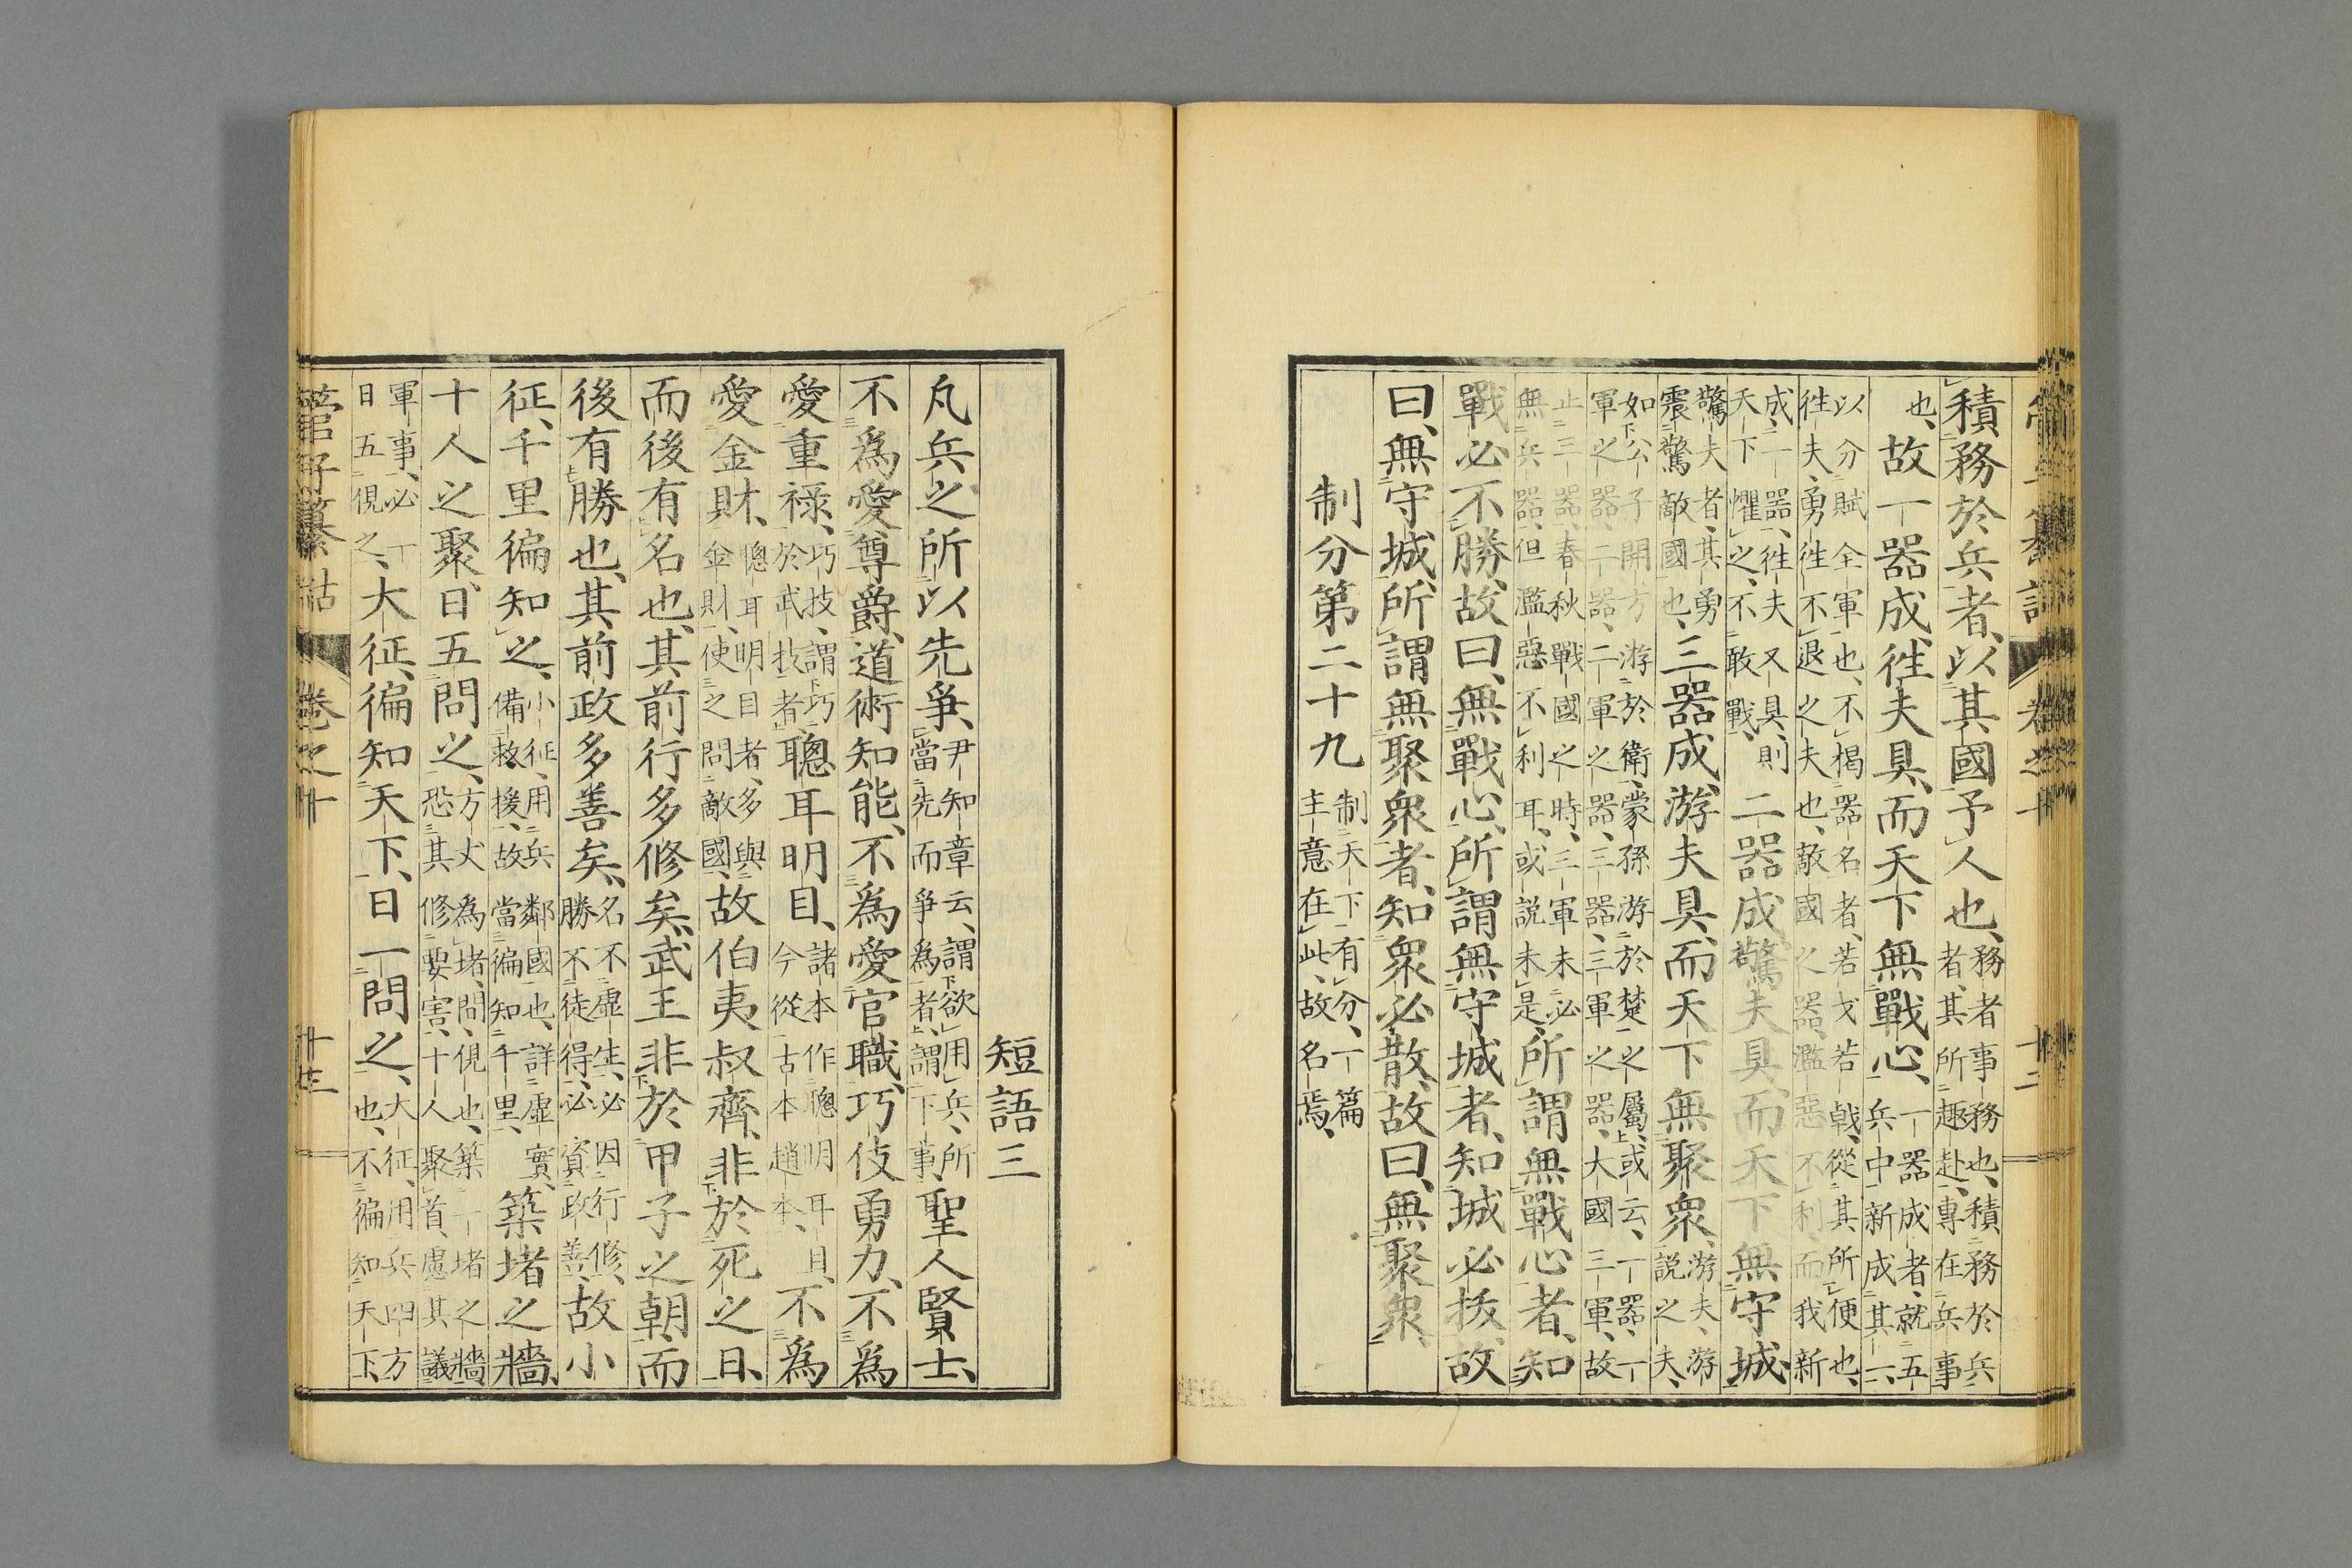 積務於兵者、以其國予人也、務者事務也、積務於兵者、其所趣赴、專在兵事
也、故一器成、往夫具、而天下無戰心、一器成者、就五兵中新成其一、
以分賦全軍也、不揭器名者、若戈若戟、從其所便也、往夫、勇往不退之夫也、敵國之器、濫惡不利、而我新
成一器、往夫又具、則天下懼之、不敢戰、二器成、驚夫具、而天下無守城、
驚夫者、其勇震驚敵國也、三器成、游夫具、而天下無聚衆、游夫、游說之夫、
如公子開方游於衛、蒙孫游於楚之屬、或云、一器、一軍之器、二器、二軍之器、三器、三軍之器、大國三軍、故
止三器、春秋戰國之時、三軍未必無兵器、但濫惡不利耳、或說未是、所謂無戰心者、知
戰必不勝、故曰、無戰心、所謂無守城者、知城必拔、故
曰、無守城、所謂無聚衆者、知衆必散、故曰、無聚衆、
制分第二十九 制天下有分、一篇主意在此、故名焉、
短語三
凡兵之所以先爭、尹知章云、謂欲用兵、所當先而爭爲者、謂下事、聖人賢士、
不爲愛尊爵、道術知能、不爲愛官職、巧伎勇力、不爲
愛重祿、巧技、謂巧於武技者、聰耳明目、諸本作聰明耳目、今從古本趙本、不爲
愛金財、聰耳明目者、多與金財、使之問敵國、故伯夷叔齊、非於死之日、
而後有名也、其前行多修矣、武王非於甲子之朝、而
後有勝也、其前政多善矣、名不虛生、必因行修、勝不徒得、必資政善、故小
征、千里徧知之、小征、用兵鄰國也、詳虛實、備救援、故當徧知千里、築堵之牆、
十人之聚、日五問之、方丈爲堵、問、俔也、築一堵之牆、恐其修要害、十人聚首、慮其議
軍事、必一日五俔之、大征、徧知天下、日一問之、大征、用兵四方也、不徧知天下、
管子纂詁 卷之十 十三